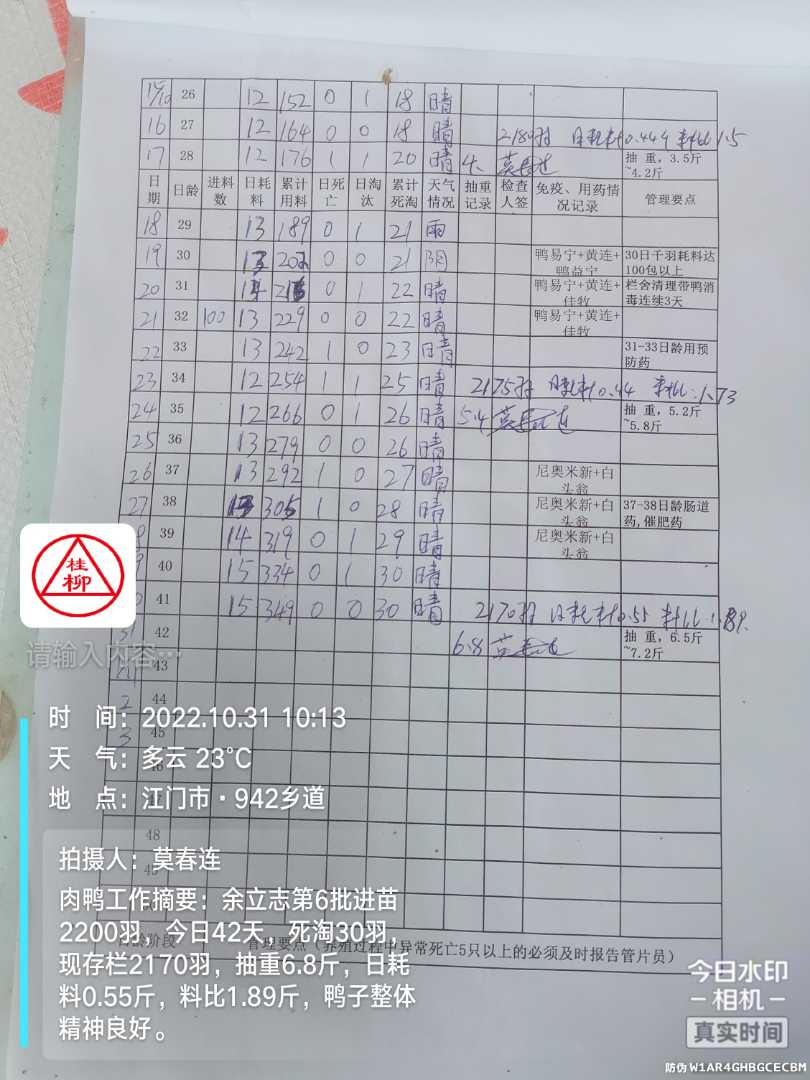 15/10 26 12 152 0 1 18 晴
16 27 12 164 0 0 18 晴 2180羽 日耗料0.449 料比1.5
17 28 12 176 1 1 20 晴 4. 抽 重，3.5斤~4.2斤
日期 日龄 进料数 日耗料 累计用料 日死亡 日淘汰 累计死淘 天气情况 抽重记录 检查人签 免疫、用药情况记录 管理要点
18 29 13 189 0 1 21 雨
19 30 13 202 0 0 21 阴 鸭易宁+黄连+鸭益宁 30日千羽耗料达100包以上
20 31 14 216 0 1 22 晴 鸭易宁+黄连+佳牧 栏舍清理带鸭消毒连续3天
21 32 100 13 229 0 0 22 晴 鸭易宁+黄连+佳牧
22 33 13 242 1 0 23 晴 31-33日龄用预防药
23 34 12 254 1 1 25 晴 2175羽 日耗料0.44 料比:1.73
24 35 12 266 0 1 26 晴 5.4 莫春连 抽 重，5.2斤~5.8斤
25 36 13 279 0 0 26 晴
26 37 13 292 1 0 27 晴 尼奥米新+白头翁
27 38 13 305 1 0 28 晴 尼奥米新+白头翁 37-38日龄肠道药,催肥药
39 14 319 0 1 29 晴 尼奥米新+白头翁
40 15 334 0 1 30 晴
41 15 349 0 0 30 晴 2170羽 日耗料0.55 料比1.89.
31 42 6.8 莫春连 抽 重，6.5斤~7.2斤
43
2 44
3 45
48
桂柳
请输入内容…
时 间：2022.10.31 10:13
天 气：多云 23℃
地 点：江门市·942乡道
拍摄人：莫春连
肉鸭工作摘要：余立志第6批进苗
2200羽，今日42天，死淘30羽，
现存栏2170羽，抽重6.8斤，日耗
料0.55斤，料比1.89斤，鸭子整体
精神良好。
日龄阶段 管理要点（养殖过程中异常死亡5只以上的必须及时报告管片员）
今日水印
-相机-
真实时间
防伪 W1AR4GHBGCECBM